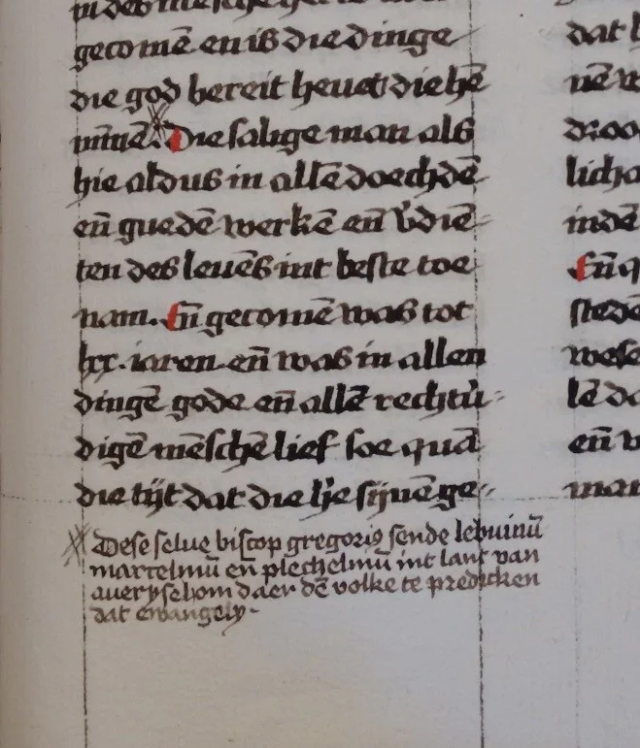 in des menschen herte
gecomē en is die dinge
die god bereit heuet die hē
mīnē. Die salige man als
hie aldus in allē doechdē
eñ guedē werkē eñ v̓diē
ten des leuēs int beste toe
nam. Eñ gecomē was tot
lxx. iaren eñ was in allen
dingē gode eñ allē rechtũ
digē mēschē lief soe quā
die tijt dat die h̓e sijnē ge
Dese selue biscop gregori9 sende lebuinū
marcelmū eñ plechelmū int lant van
auerysel om daer dē volke te predicken
dat ewangely
dat
lich
indē
Eñ
stede
wese
lē
eñ
man